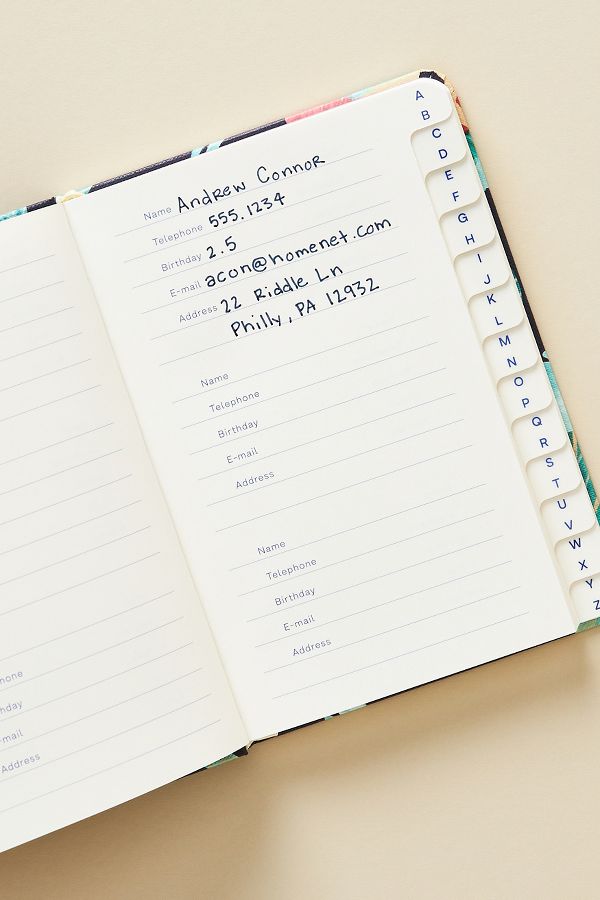 none
hday
-mail
Address
Name Andrew Connor
Telephone 555.1234
Birthday 2.5
E-mail acon@homenet.com
Address 22 Riddle Ln
Philly, PA 12932
Name
Telephone
Birthday
E-mail
Address
Name
Telephone
Birthday
E-mail
Address
A
B
C
D
E
F
G
H
I
J
K
L
M
N
O
P
Q
R
S
T
U
V
W
X
Y
Z